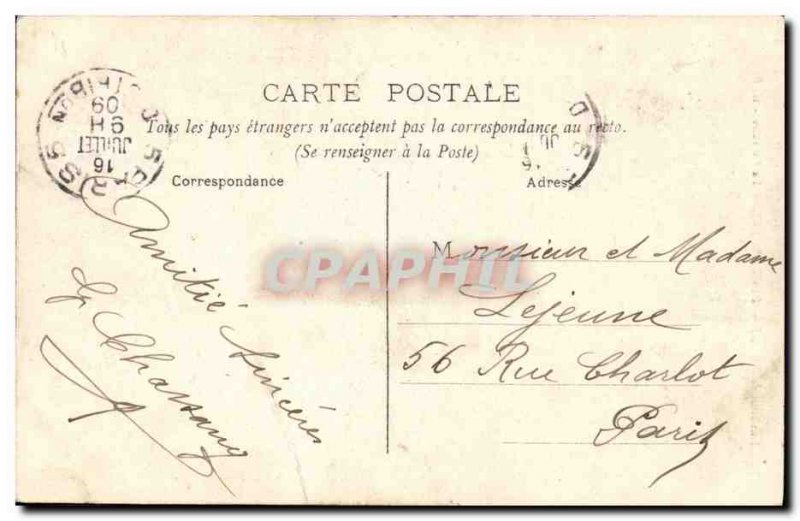 CARTE POSTALE
Tous les pays étrangers n'acceptent pas la correspondance au recto.
(Se renseigner à la Poste)
Correspondance
Adresse
16
JUILLET
9H
09
Amitié sincères
G Chassang
Monsieur et Madame
Lejeune
56 Rue Charlot
Paris
CPAPHIL